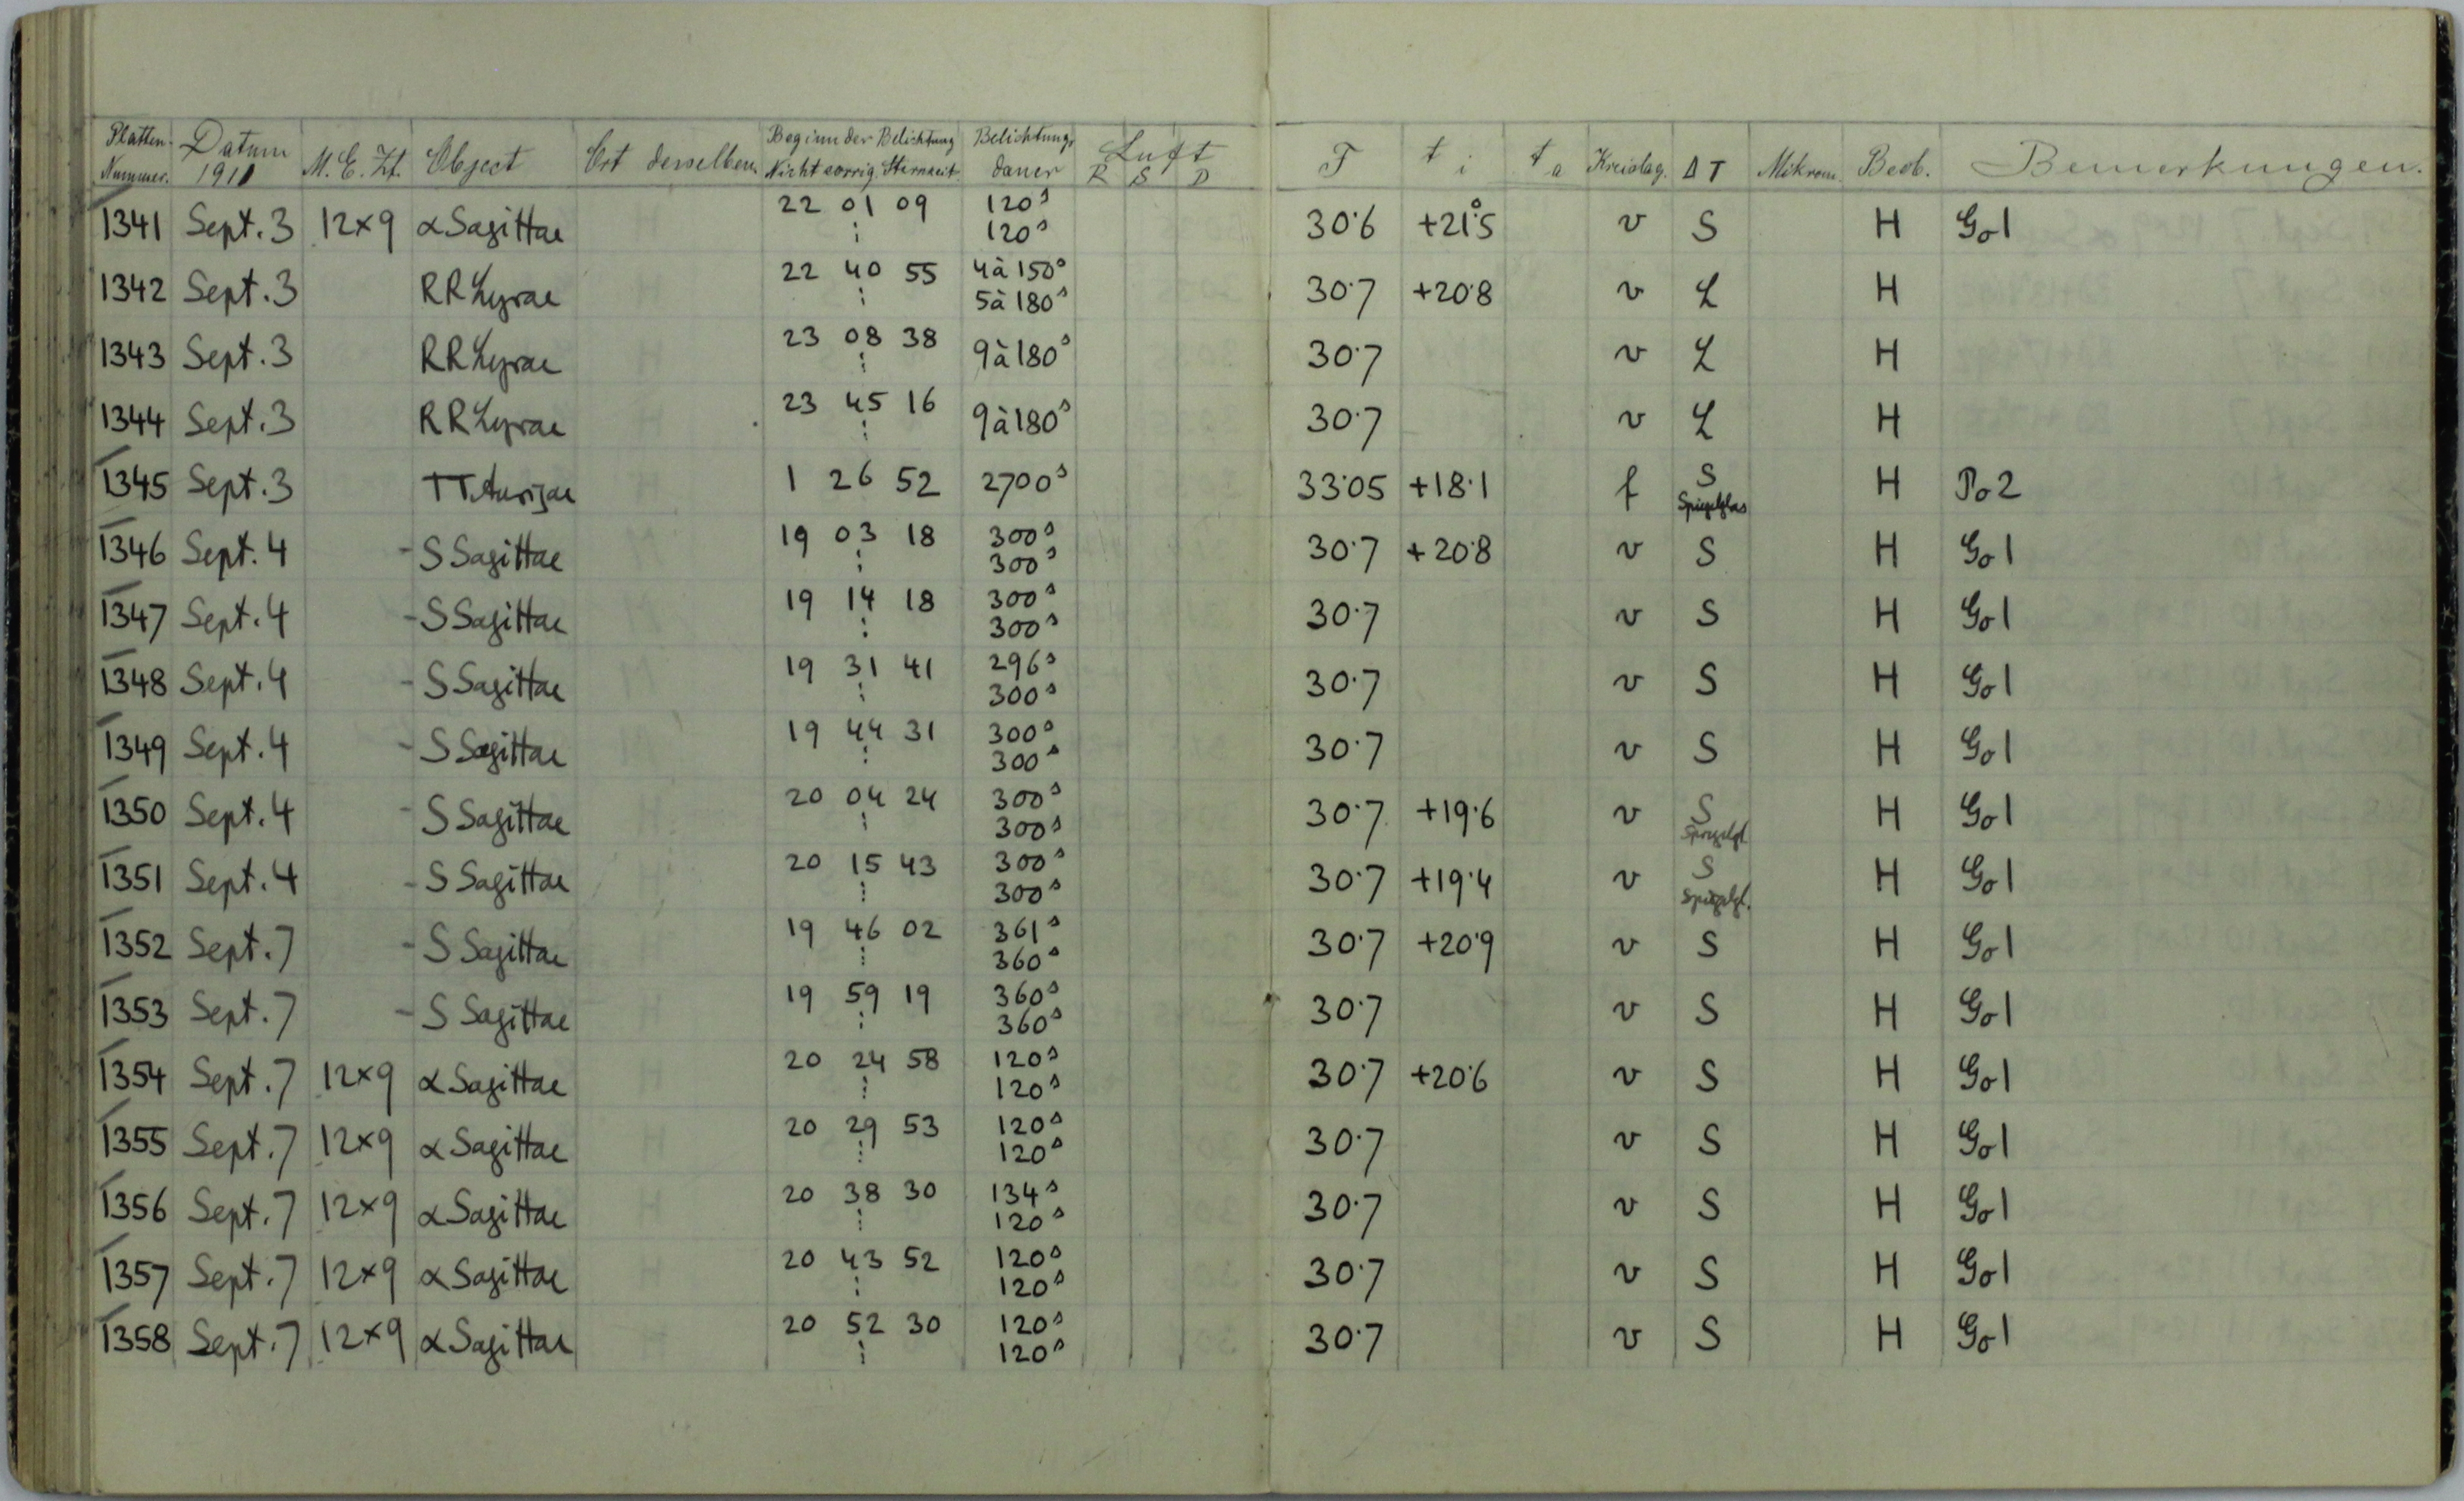 Platten-Nummer. Datum 1911 M. E. Zt. Object Ort desselben Beginn der Belichtung Nicht corrig. Sternzeit. Belichtungsdauer Luft R S D F t i t a Kreislag. Δ T Mikrom. Beob. Bemerkungen.
1341 Sept. 3 12×9 α Sagittae 22 01 09 120s 120s 30·6 +21°5 v S H Go1
1342 Sept. 3 RR Lyrae 22 40 55 4 à 150s 5 à 180s 30·7 +20·8 v L H
1343 Sept. 3 RR Lyrae 23 08 38 9 à 180s 30·7 v L H
1344 Sept. 3 RR Lyrae 23 45 16 9 à 180s 30·7 v L H
1345 Sept. 3 TT Aurigae 1 26 52 2700s 33·05 +18·1 f S Spiegelglas H Po 2
1346 Sept. 4 - S Sagittae 19 03 18 300s 300s 30·7 +20·8 v S H Go1
1347 Sept. 4 - S Sagittae 19 14 18 300s 300s 30·7 v S H Go1
1348 Sept. 4 - S Sagittae 19 31 41 296s 300s 30·7 v S H Go1
1349 Sept. 4 - S Sagittae 19 44 31 300s 300s 30·7 v S H Go1
1350 Sept. 4 - S Sagittae 20 04 24 300s 300s 30·7 +19·6 v S Spiegelgl. H Go1
1351 Sept. 4 - S Sagittae 20 15 43 300s 300s 30·7 +19·4 v S Spiegelgl. H Go1
1352 Sept. 7 - S Sagittae 19 46 02 361s 360s 30·7 +20·9 v S H Go1
1353 Sept. 7 - S Sagittae 19 59 19 360s 360s 30·7 v S H Go1
1354 Sept. 7 12×9 α Sagittae 20 24 58 120s 120s 30·7 +20·6 v S H Go1
1355 Sept. 7 12×9 α Sagittae 20 29 53 120s 120s 30·7 v S H Go1
1356 Sept. 7 12×9 α Sagittae 20 38 30 134s 120s 30·7 v S H Go1
1357 Sept. 7 12×9 α Sagittae 20 43 52 120s 120s 30·7 v S H Go1
1358 Sept. 7 12×9 α Sagittae 20 52 30 120s 120s 30·7 v S H Go1